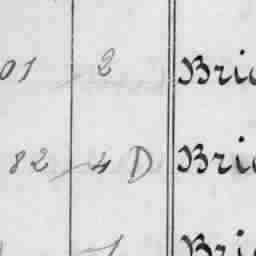 01 2 Bri
82 4 D Bri
Bri